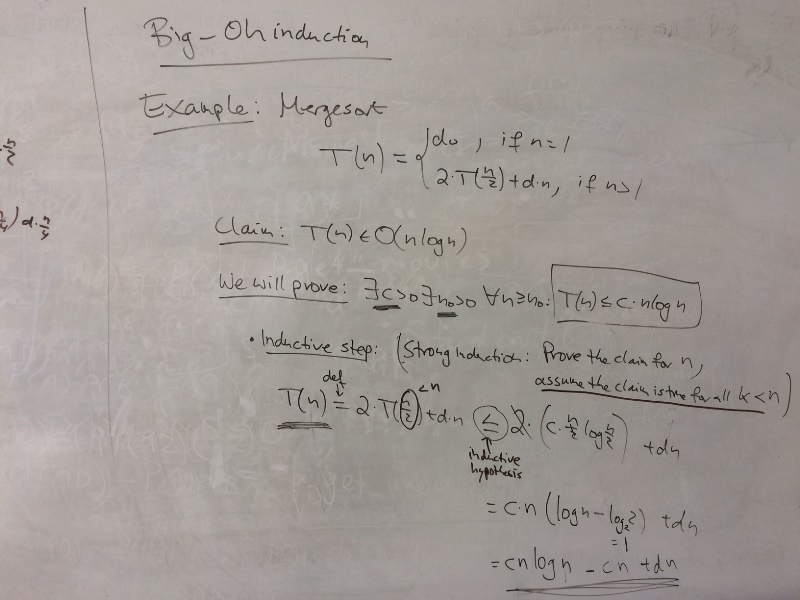 Big-Oh induction
Example: Mergesort
T(n) = { d₀, if n=1
2·T(n/2)+d·n, if n>1
n/2
n/4) d·n/4
Claim: T(n) ∈ O(n log n)
We will prove: ∃c>0 ∃n₀>0 ∀n≥n₀: T(n) ≤ c·n log n
• Inductive step: (Strong induction: Prove the claim for n,
assume the claim is true for all k<n)
def
↓
T(n) = 2·T(n/2)+d·n ≤ 2·(c·n/2 log n/2) + dn
<n
↑
inductive
hypothesis
= c·n (log n - log₂2) + dn
=1
= cn log n - cn + dn